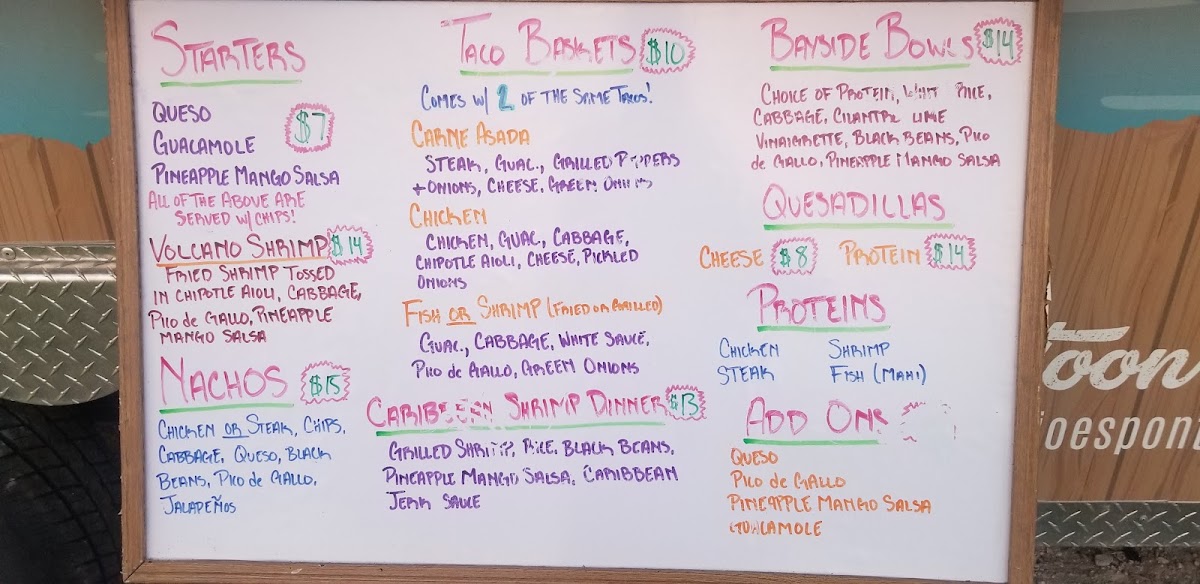 STARTERS
QUESO
GUACAMOLE
$7
PINEAPPLE MANGO SALSA
ALL OF THE ABOVE ARE
SERVED W/ CHIPS!
VOLCANO SHRIMP $14
FRIED SHRIMP TOSSED
IN CHIPOTLE AIOLI, CABBAGE,
PICO de GALLO, PINEAPPLE
MANGO SALSA
NACHOS $15
CHICKEN OR STEAK, CHIPS,
CABBAGE, QUESO, BLACK
BEANS, PICO de GALLO,
JALAPEÑOS
TACO BASKETS $10
COMES W/ 2 OF THE SAME TACOS!
CARNE ASADA
STEAK, GUAC., GRILLED PEPPERS
+ ONIONS, CHEESE, GREEN ONIONS
CHICKEN
CHICKEN, GUAC., CABBAGE,
CHIPOTLE AIOLI, CHEESE, PICKLED
ONIONS
FISH OR SHRIMP (FRIED OR GRILLED)
GUAC., CABBAGE, WHITE SAUCE,
PICO de GALLO, GREEN ONIONS
CARIBBEAN SHRIMP DINNER $13
GRILLED SHRIMP, RICE, BLACK BEANS,
PINEAPPLE MANGO SALSA, CARIBBEAN
JERK SAUCE
BAYSIDE BOWLS $14
CHOICE OF PROTEIN, WHITE RICE,
CABBAGE, CILANTRO LIME
VINAIGRETTE, BLACK BEANS, PICO
de GALLO, PINEAPPLE MANGO SALSA
QUESADILLAS
CHEESE $8 PROTEIN $14
PROTEINS
CHICKEN SHRIMP
STEAK FISH (MAHI)
ADD ONS
QUESO
PICO de GALLO
PINEAPPLE MANGO SALSA
GUACAMOLE
toon
oespon